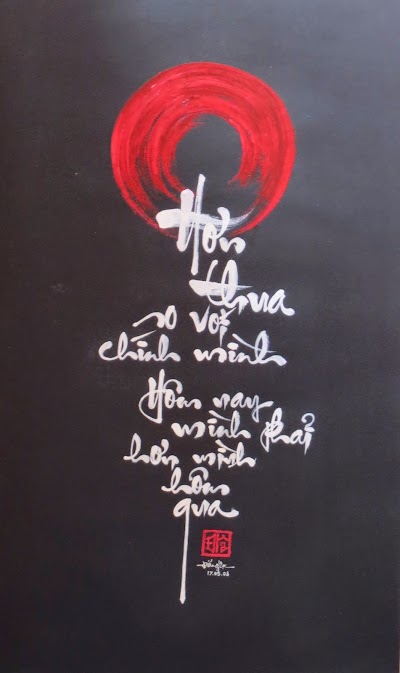 Hơn
thua
so với
chính mình
Hôm nay
mình phải
hơn mình
hôm
qua
17.05.03